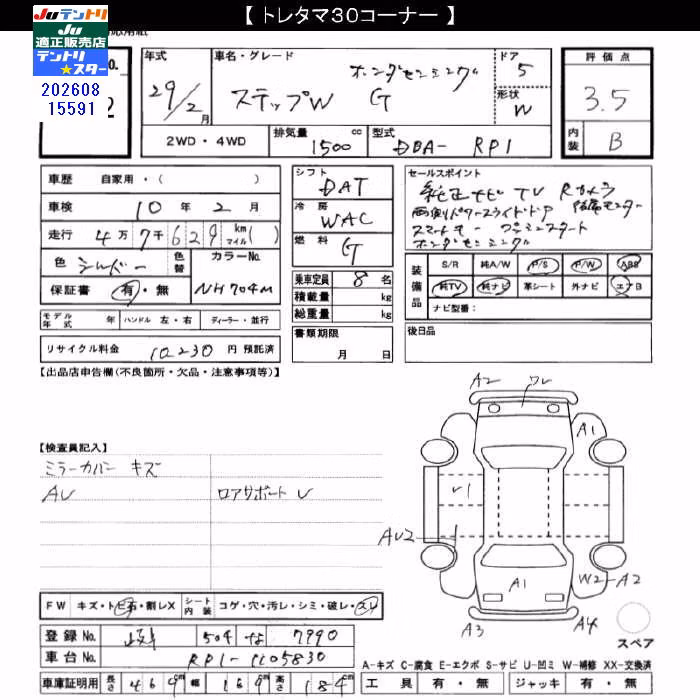 【 トレタマ30コーナー 】
JUテントリ
JU
適正販売店
テントリ
★スター
202608
15591
年式 車名・グレード ドア 評価点
29/2月 ステップW G ホンダセンシング 5 3.5
形状 W
2WD・4WD 排気量 1500 cc 型式 DBA- RP1 内装 B
車歴 自家用・( )
車検 10年 2月
走行 4万7千629 km マイル( )
色 シルバー 色替 カラーNo.
保証書 有・無 NH704M
モデル年式 年 ハンドル 左・右 ディーラー・並行
リサイクル料金 10230 円 預託済
シフト DAT
冷房 WAC
燃料 G
乗車定員 8 名
積載量 kg
総重量 kg
書類期限
月 日
セールスポイント
純正ナビ TV Rカメラ
両側パワースライドドア
スマートキー プッシュスタート
ホンダセンシング
装備品 S/R 純A/W P/S P/W ABS
純TV 純ナビ 革シート 外ナビ エアB
ナビ型番:
後日品
【出品店申告欄(不良箇所・欠品・注意事項等)】
【検査員記入】
ミラーカバー キズ
AU ロアサポート U
A2 ワレ
A1
U1
AU2
A1
W2-A2
A3 A4
スペア
FW キズ・トビ石・割レX シート内装 コゲ・穴・汚レ・シミ・破レ・スレ
登録No. 504 な 7990
車台No. RP1-1105830
車庫証明用 長さ 469cm 幅 169cm 高さ 184cm
A-キズ C-腐食 E-エクボ S-サビ U-凹ミ W-補修 XX-交換済
工具 有・無 ジャッキ 有・無